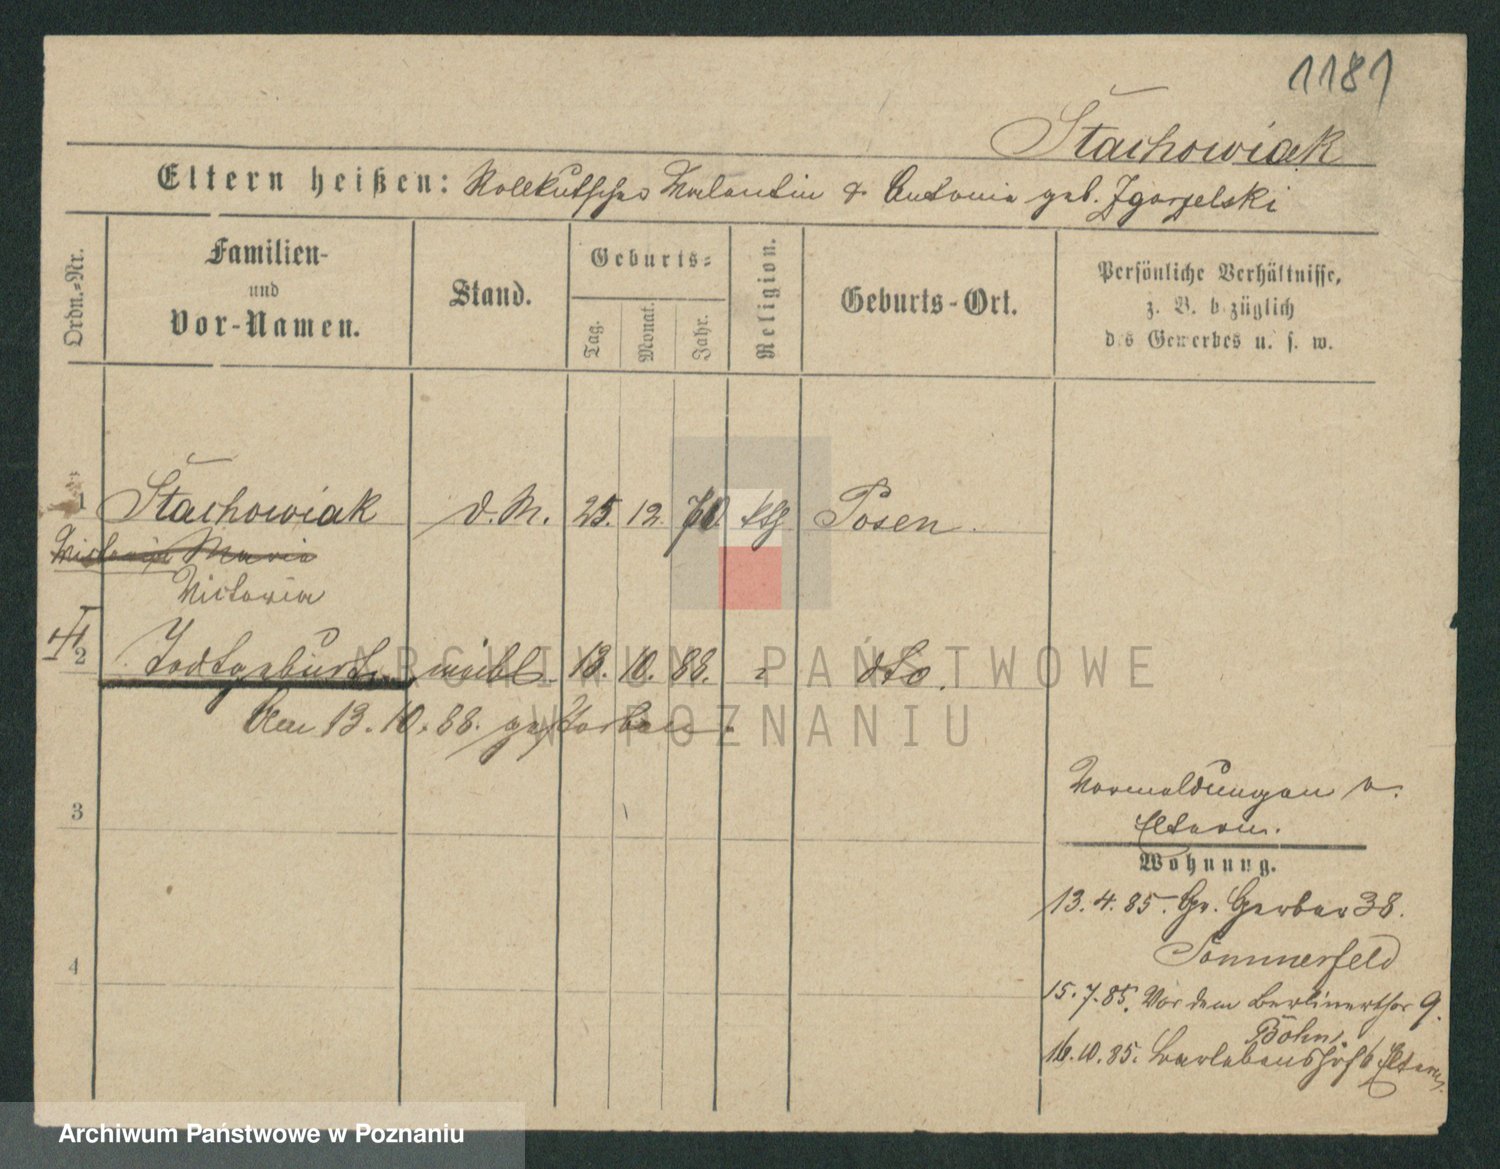 1181
Stachowiak
Eltern heißen: Rollkutscher Valentin & Antonie geb. Zgorzelski
Ordn.-Nr.
Familien-
und
Vor-Namen.
Stand.
Geburts-
Tag.
Monat.
Jahr.
Religion.
Geburts-Ort.
Persönliche Verhältnisse,
z. B. bezüglich
des Gewerbes u. s. w.
1 Stachowiak d. M. 25. 12. 70 kth Posen.
Victoria Maria
Victoria
2 Todtgeburt weibl. 13. 10. 88. " dto.
Am 13. 10. 88. gestorben.
ARCHIWUM PAŃSTWOWE
W POZNANIU
3
4
Vormeldungen v.
Eltern.
Wohnung.
13. 4. 85. Gr. Gerber 38.
Sommerfeld
15. 7. 85. Vor dem Berlinerthor 9.
Böhm
16. 10. 85. Eltern
Archiwum Państwowe w Poznaniu